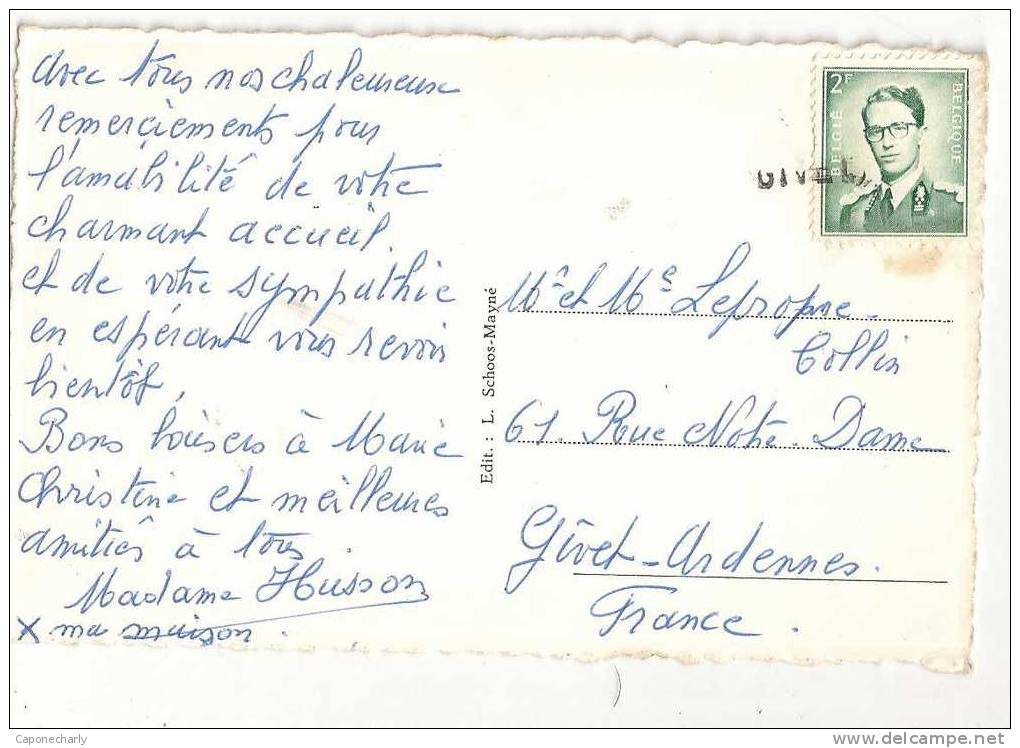 avec tous nos chaleureuse
remerciements pour
l'amabilité de votre
charmant accueil.
et de votre sympathie
en espérant vous revoir
bientôt,
Bons baisers à Marie
Christine et meilleures
amitiés à tous.
Madame Husson
X ma maison.
Edit. : L. Schoos-Mayné
2F
BELGIË
BELGIQUE
GIVET
Mr et Me Lepropre-
Collin
61. Rue Notre-Dame
Givet-Ardennes.
France.
Caponecharly
www.delcampe.net